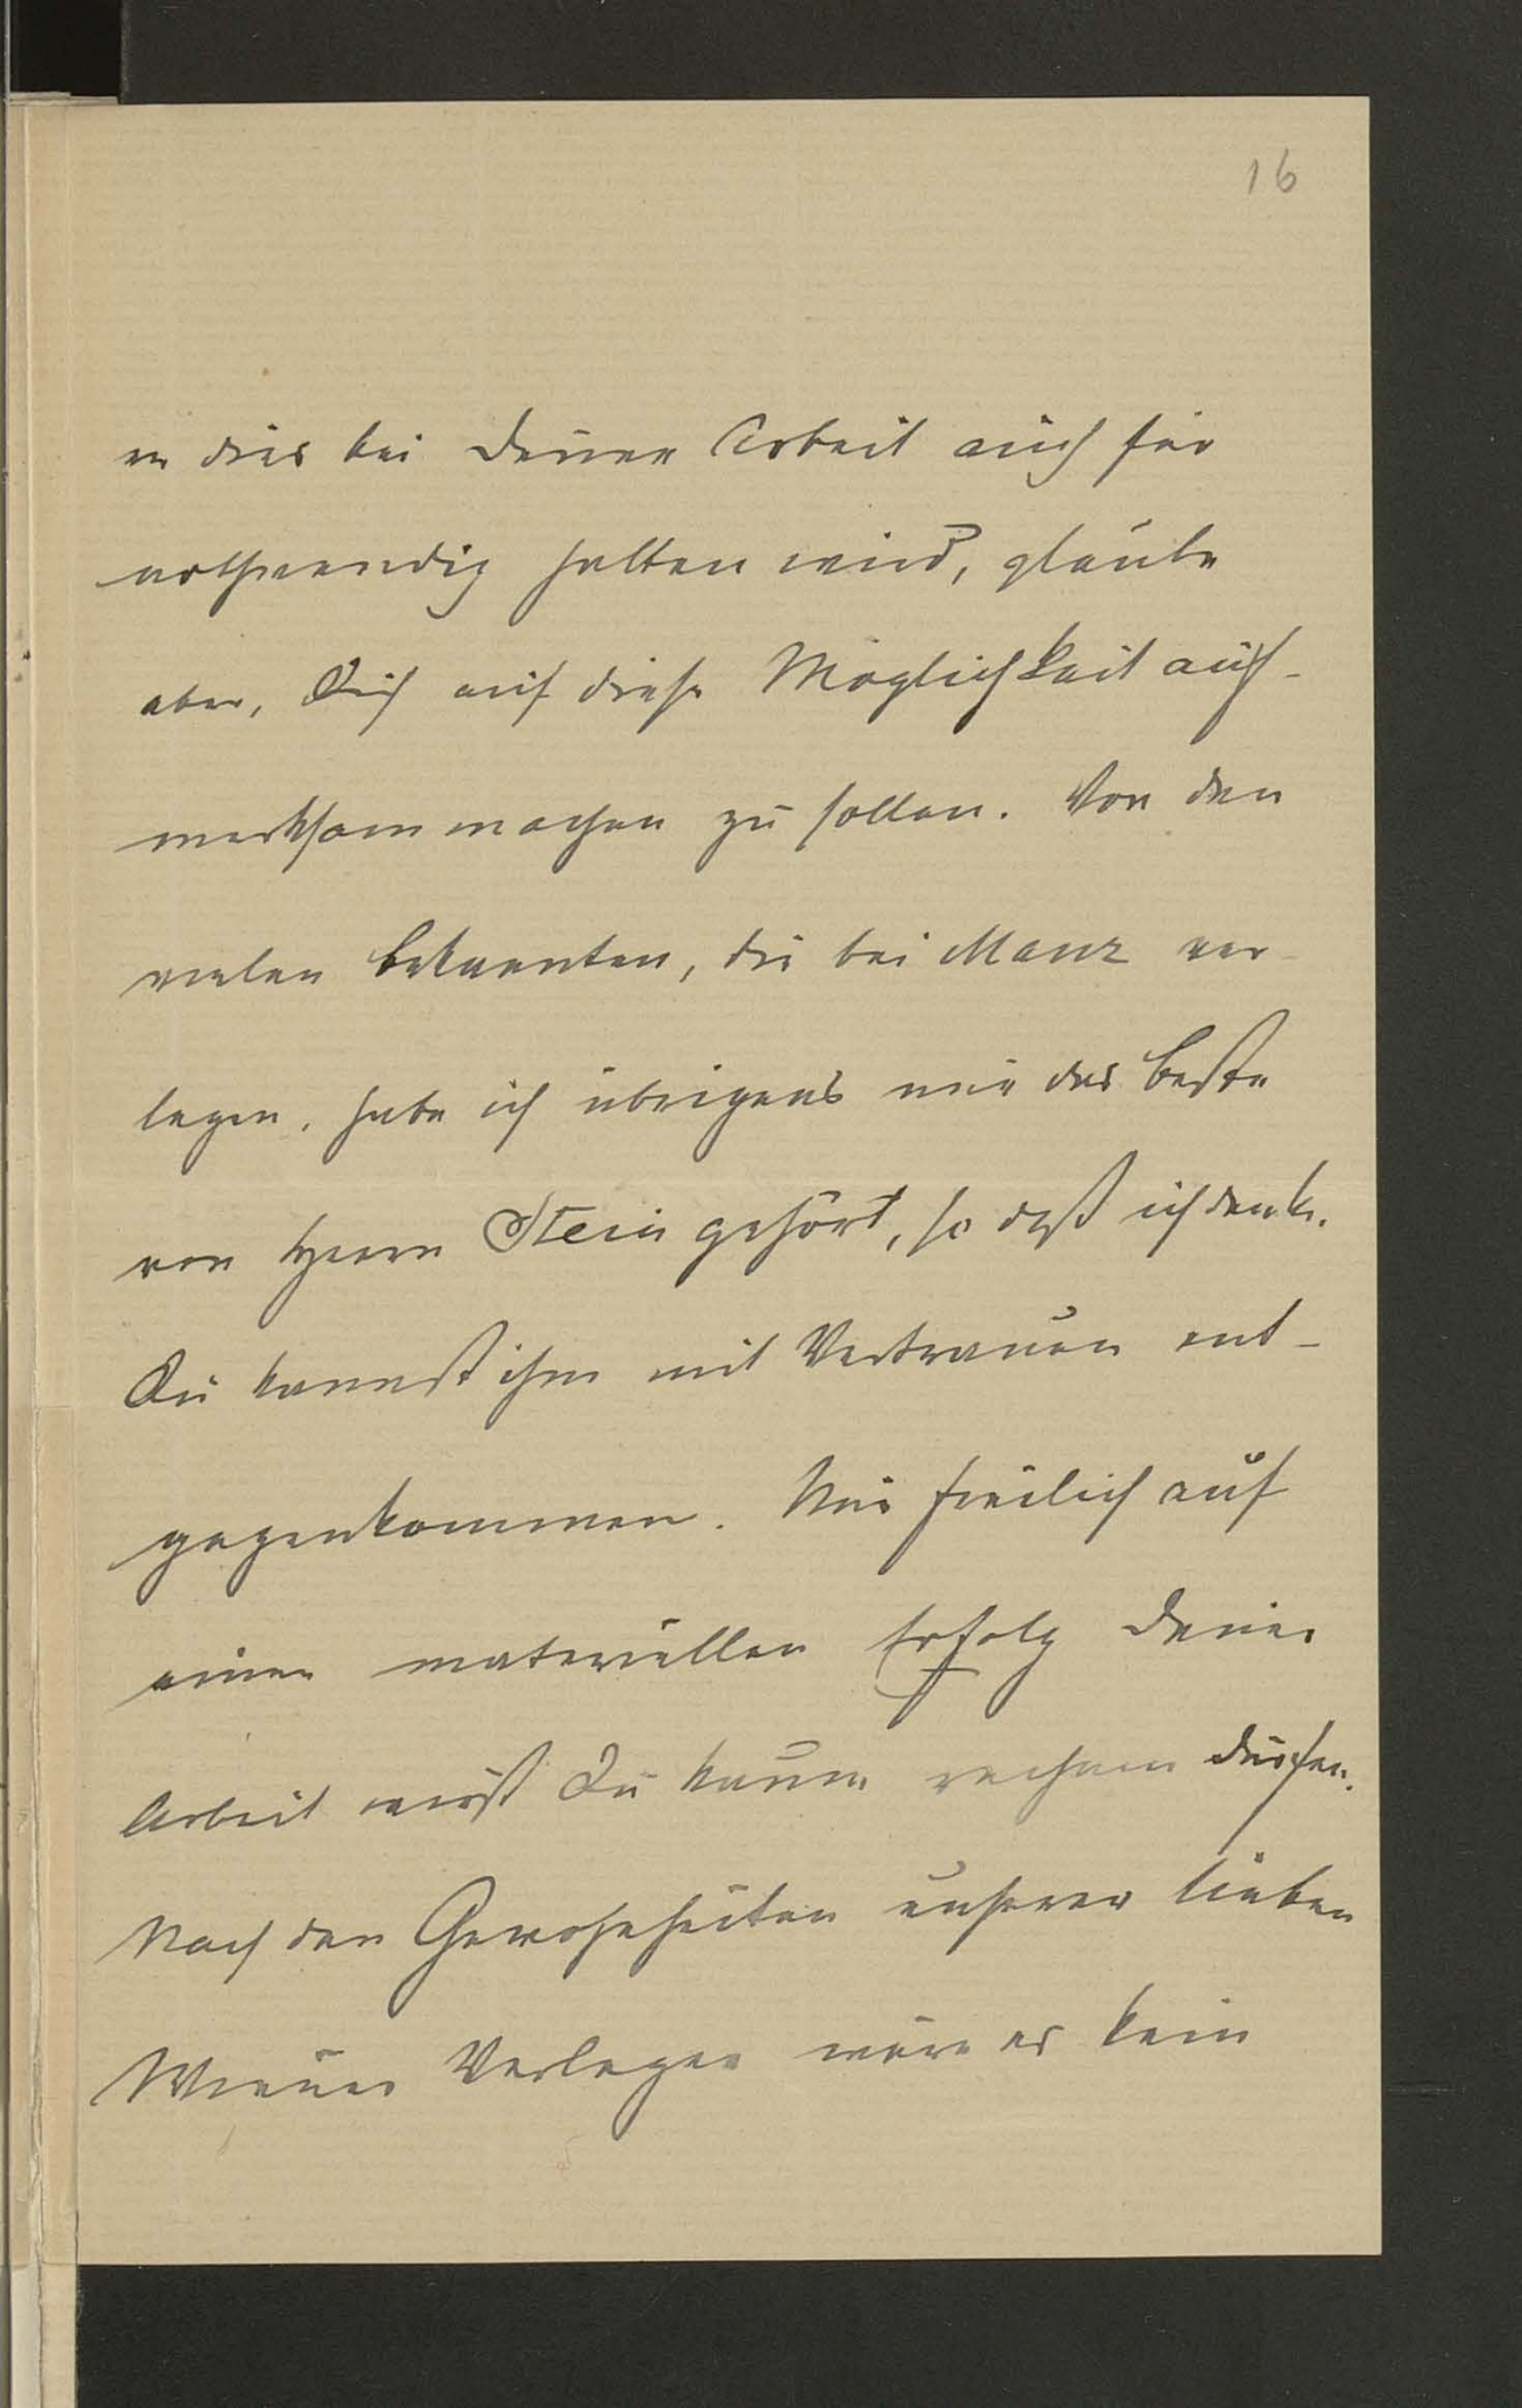 16
er dies bei Deiner Arbeit auch für
nothwendig halten wird, glaube
aber, Dich auf diese Möglichkeit auf-
merksam machen zu sollen. Von den
vielen Bekannten, die bei Manz ver-
legen, habe ich übrigens nur das Beste
von Herrn Stein gehört, so daß ich denke,
Du kannst ihm mit Vertrauen ent-
gegenkommen. Nur freilich auf
einen materiellen Erfolg Deiner
Arbeit wirst Du kaum rechnen dürfen.
Nach den Gewohnheiten unserer lieben
Wiener Verleger wäre es kein